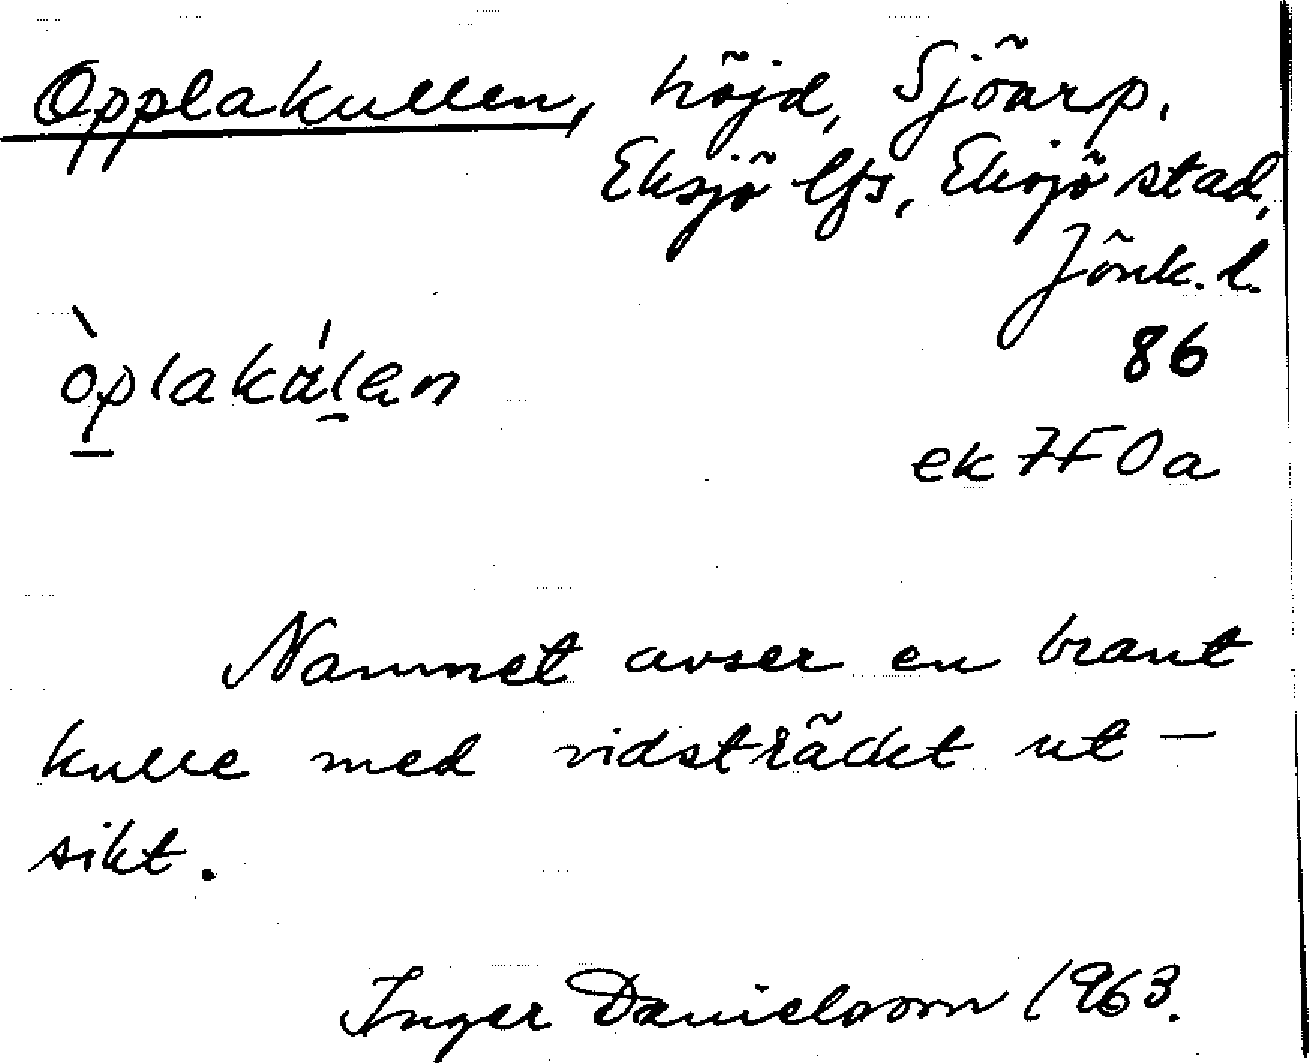 Opplakullen, höjd, Sjöarp.
Eksjö lfs, Eksjö stad,
Jönk. l.
òplakálan
86
ek 7F 0a
Namnet avser en brant
kulle med vidsträckt ut-
sikt.
Inger Danielsson 1963.